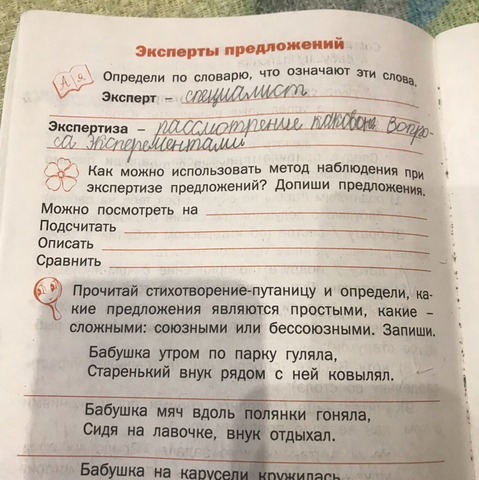 Эксперты предложений
А Я
Определи по словарю, что означают эти слова.
Эксперт – специалист
Экспертиза – рассмотрение вопро-
са эксперементами
Как можно использовать метод наблюдения при
экспертизе предложений? Допиши предложения.
Можно посмотреть на
Подсчитать
Описать
Сравнить
Прочитай стихотворение-путаницу и определи, ка-
кие предложения являются простыми, какие –
сложными: союзными или бессоюзными. Запиши.
Бабушка утром по парку гуляла,
Старенький внук рядом с ней ковылял.
Бабушка мяч вдоль полянки гоняла,
Сидя на лавочке, внук отдыхал.
Бабушка на карусели кружилась